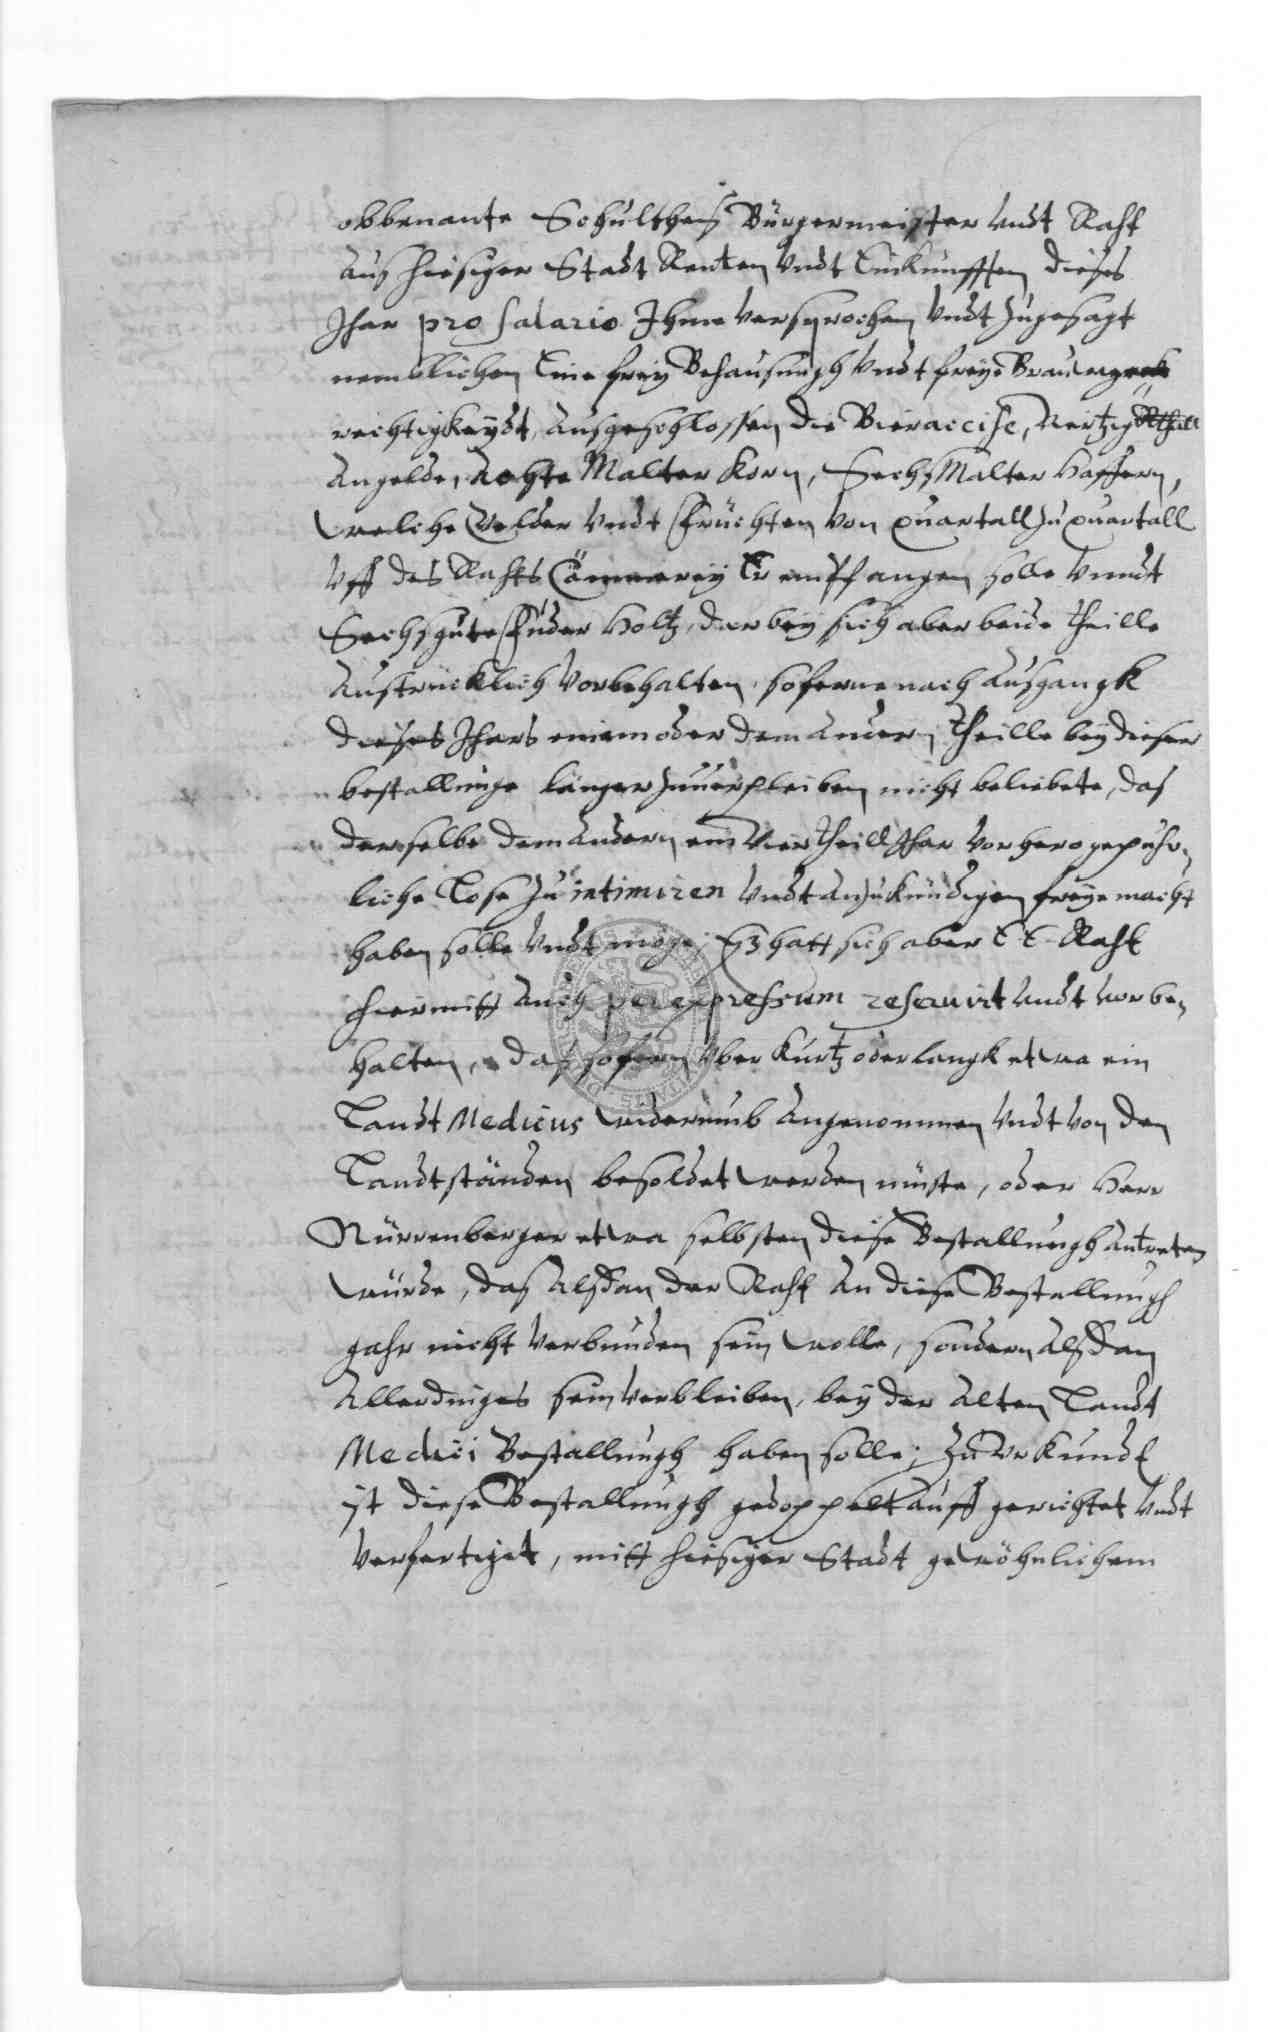 obbenante Schultheß Bürgermeister undt Raht
aus hiesiger Stadt Renten undt Einkunfften dieses
Jhar pro salario Ihme versprochen undt zugesagt
nemblichen Eine frey Behausungh undt freye Brau
rechtigkeydt, ausgeschlossen die Bieraccise, Viertzig Rthll
Angelde, Achte Malter Korn, Sechs Malter Haffern,
welche Gelder undt Früchten von quartall zu quartall
uff des Rahts Cämmerey Er empfangen solle unndt
Sechs gute Fuder Holtz, darbey sich aber beide theille
austrücklich vorbehalten, soferne nach ausgangk
dieses Jhars einem oder dem andern theille bey dieser
bestallunge länger zuverpleiben nicht beliebete, das
derselbe dem andern ein viertheill Jhar vorhero gepühr,
liche Lose zu intimiren undt anzukündigen freye macht
haben solle undt möge; Eß hatt sich aber E E Raht
hiermitt auch per expressum reservirt undt vorbe,
halten, daß sofern uber kurtz oder langk etwa ein
Landt Medicus widerumb angenommen undt von den
Landtständen besoldet werden müste, oder Herr
Nürrenberger etwa selbsten diese Bestallungh antreten
würde, das alßdan der Raht an diese Bestallungh
gahr nicht verbunden sein wolle, sondern alßdan
allerdinges sein verbleiben, bey der alten Landt
Medici Bestallungh haben solle; Zu Urkundt
ist diese Bestallungh gedoppelt auffgerichtet undt
verfertiget, mitt hiesiger Stadt gewöhnlichem